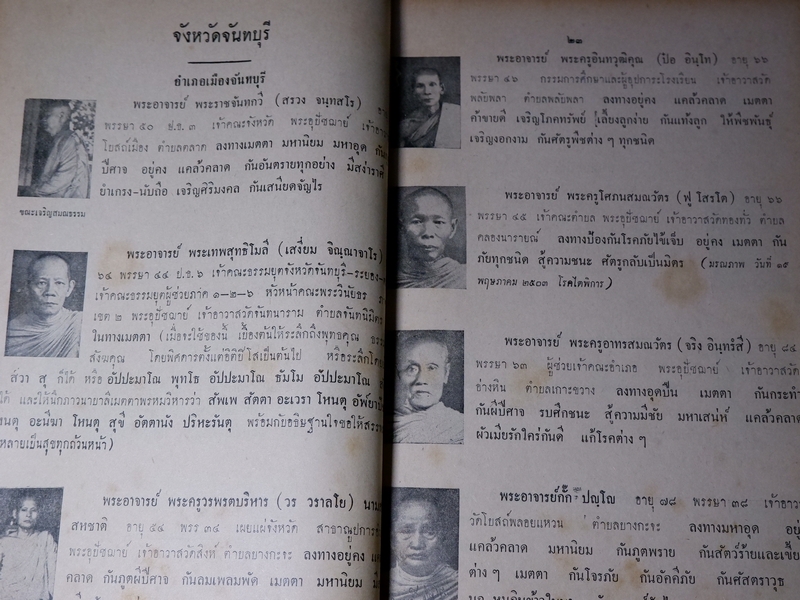 จังหวัดจันทบุรี
อำเภอเมืองจันทบุรี
พระอาจารย์ พระราชจันทกวี (สรวง จนฺทสโร)
พรรษา ๕๐ ป.ธ. ๓ เจ้าคณะจังหวัด พระอุปัชฌาย์
โยสถ์เมือง ตำบลตลาด ลงทางเมตตา มหานิยม มหาอุด
ปีศาจ อยู่คง แคล้วคลาด กันอันตรายทุกอย่าง มีสง่าราศี
ยำเกรง-นับถือ เจริญศิริมงคล กันเสนียดจัญไร
ขณะเจริญสมณธรรม
พระอาจารย์ พระเทพสุทธิโมลี (เสงี่ยม จิณฺณาจาโร)
๖๔ พรรษา ๔๔ ป.ธ. ๖ เจ้าคณะธรรมยุตจังหวัดจันทบุรี-ระยอง-
เจ้าคณะธรรมยุตผู้ช่วยภาค ๑-๒-๖ หัวหน้าคณะพระวินัยธร
เขต ๒ พระอุปัชฌาย์ เจ้าอาวาสวัดจันทนาราม ตำบลจันทนิมิต
ในทางเมตตา (เมื่อจะใช้ของนี้ เบื้องต้นให้ระลึกถึงพุทธคุณ
สังฆคุณ โดยพิศดารตั้งแต่อิติปิโสเป็นต้นไป หรือระลึกโดย
สวา สุ ก็ได้ หรือ อัปปะมาโณ พุทโธ อัปปะมาโณ ธัมโม อัปปะมาโณ
ได้ และให้นึกภาวนาบาลีเมตตาพรหมวิหารว่า สัพเพ สัตตา อะเวรา โหนตุ
โหนตุ อะนีฆา โหนตุ สุขี อัตตานัง ปริหะรนตุ พร้อมกับอธิษฐานใจขอให้
หลายเป็นสุขทุกถ้วนหน้า)
พระอาจารย์ พระครูวรพรตบริหาร (วร วราลโย)
สหชาติ อายุ ๕๔ พรร ๓๔ เผยแผ่จังหวัด
พระอุปัชฌาย์ เจ้าอาวาสวัดสิงห์ ตำบลบางกะจะ ลงทางอยู่คง
คลาด กันภูตผีปีศาจ กันลมเพลมพัด เมตตา มหานิยม
๒๓
พระอาจารย์ พระครูอินทวุฒิคุณ (ป๊อ อินฺโท) อายุ ๖๖
พรรษา ๔๖ กรรมการศึกษาและผู้อุปการะโรงเรียน เจ้าอาวาสวัด
พลับพลา ตำบลพลับพลา ลงทางอยู่คง แคล้วคลาด เมตตา
ค้าขายดี เจริญโภคทรัพย์ เลี้ยงลูกง่าย กันแท้งลูก ให้พืชพันธุ์
เจริญงอกงาม กันศัตรูพืชต่าง ๆ ทุกชนิด
พระอาจารย์ พระครูโศภนสมณวัตร (ฟู โสรโต) อายุ ๖๖
พรรษา ๔๕ เจ้าคณะตำบล พระอุปัชฌาย์ เจ้าอาวาสวัดทองทั่ว ตำบล
คลองนารายณ์ ลงทางป้องกันโรคภัยไข้เจ็บ อยู่คง เมตตา กัน
ภัยทุกชนิด สู้ความชนะ ศัตรูกลับเป็นมิตร (มรณภาพ วันที่ ๑๙
พฤษภาคม ๒๕๐๓ โรคไตพิการ)
พระอาจารย์ พระครูอาทรสมณวัตร (จริง อินฺทรํสี) อายุ ๘๔
พรรษา ๖๓ ผู้ช่วยเจ้าคณะอำเภอ พระอุปัชฌาย์ เจ้าอาวาสวัด
อ่างหิน ตำบลเกาะขวาง ลงทางอุดปืน เมตตา กันกระทำ
กันผีปีศาจ รบศึกชนะ สู้ความมีชัย มหาเสน่ห์ แคล้วคลาด
ผัวเมียรักใคร่กันดี แก้โรคต่าง ๆ
พระอาจารย์กั๊ก ปญฺโญ อายุ ๗๘ พรรษา ๓๘
วัดโยสถ์พลอยแหวน ตำบลบางกะจะ ลงทางมหาอุด
แคล้วคลาด มหานิยม กันภูตพราย กันสัตว์ร้ายและเขี้ยว
ต่าง ๆ เมตตา กันโจรภัย กันอัคคีภัย กันศัสตราวุธ